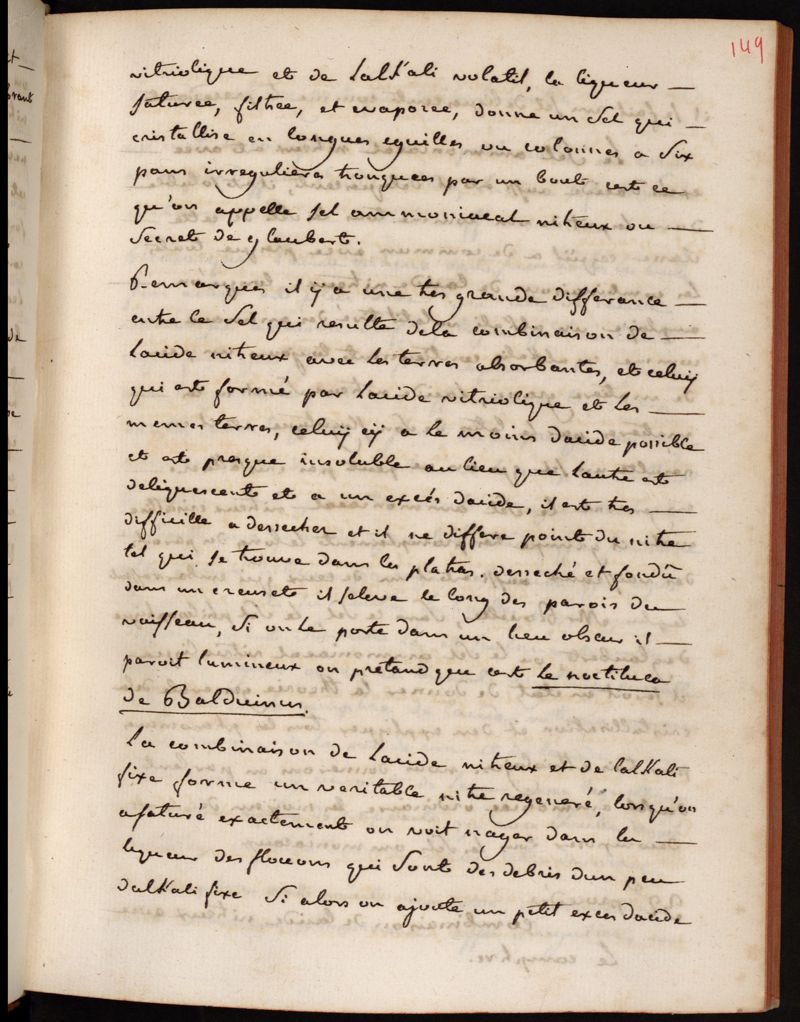 149
vitriolique et de lalKali volatil, la liqueur —
saturée, filtrée, et evaporée, donne un Sel qui —
cristallise en longues eguilles ou colonnes a Six
pans irregulieres tronquées par un bout cest ce
qu'on appelle Sel ammoniacal nitreux ou —
Secret de glaubert.
Remarques il ÿ a une tres grande differance —
entre le Sel qui resulte dela combinaison de —
lacide nitreux avec les terres absorbantes, et celuÿ
qui est formé par lacide vitriolique et les —
memes terres, celuÿ cÿ a le moins dacide possible
et est presque insoluble au lieu que lautre est
deliquescent et a un excés dacide, il est tres —
difficille a dessecher et il ne differe point du nitre
tel qui se trouve dans les platras. desseché et fondû
dans un creuset il seleve le long des parois du
vaisseau, Si on le porte dans un lieu obscur il —
paroit lumineux on pretand que cest le noctiluca
de Balduinus.
La combinaison de lacide nitreux et de lalKali
fixe forme un veritable nitre regeneré, lorsqu'on
a saturé exactement on voit nager dans la —
liqueur des flocons qui Sont des debris dun peu
dalKali fixe Si alors on ajoute un petit exces dacide